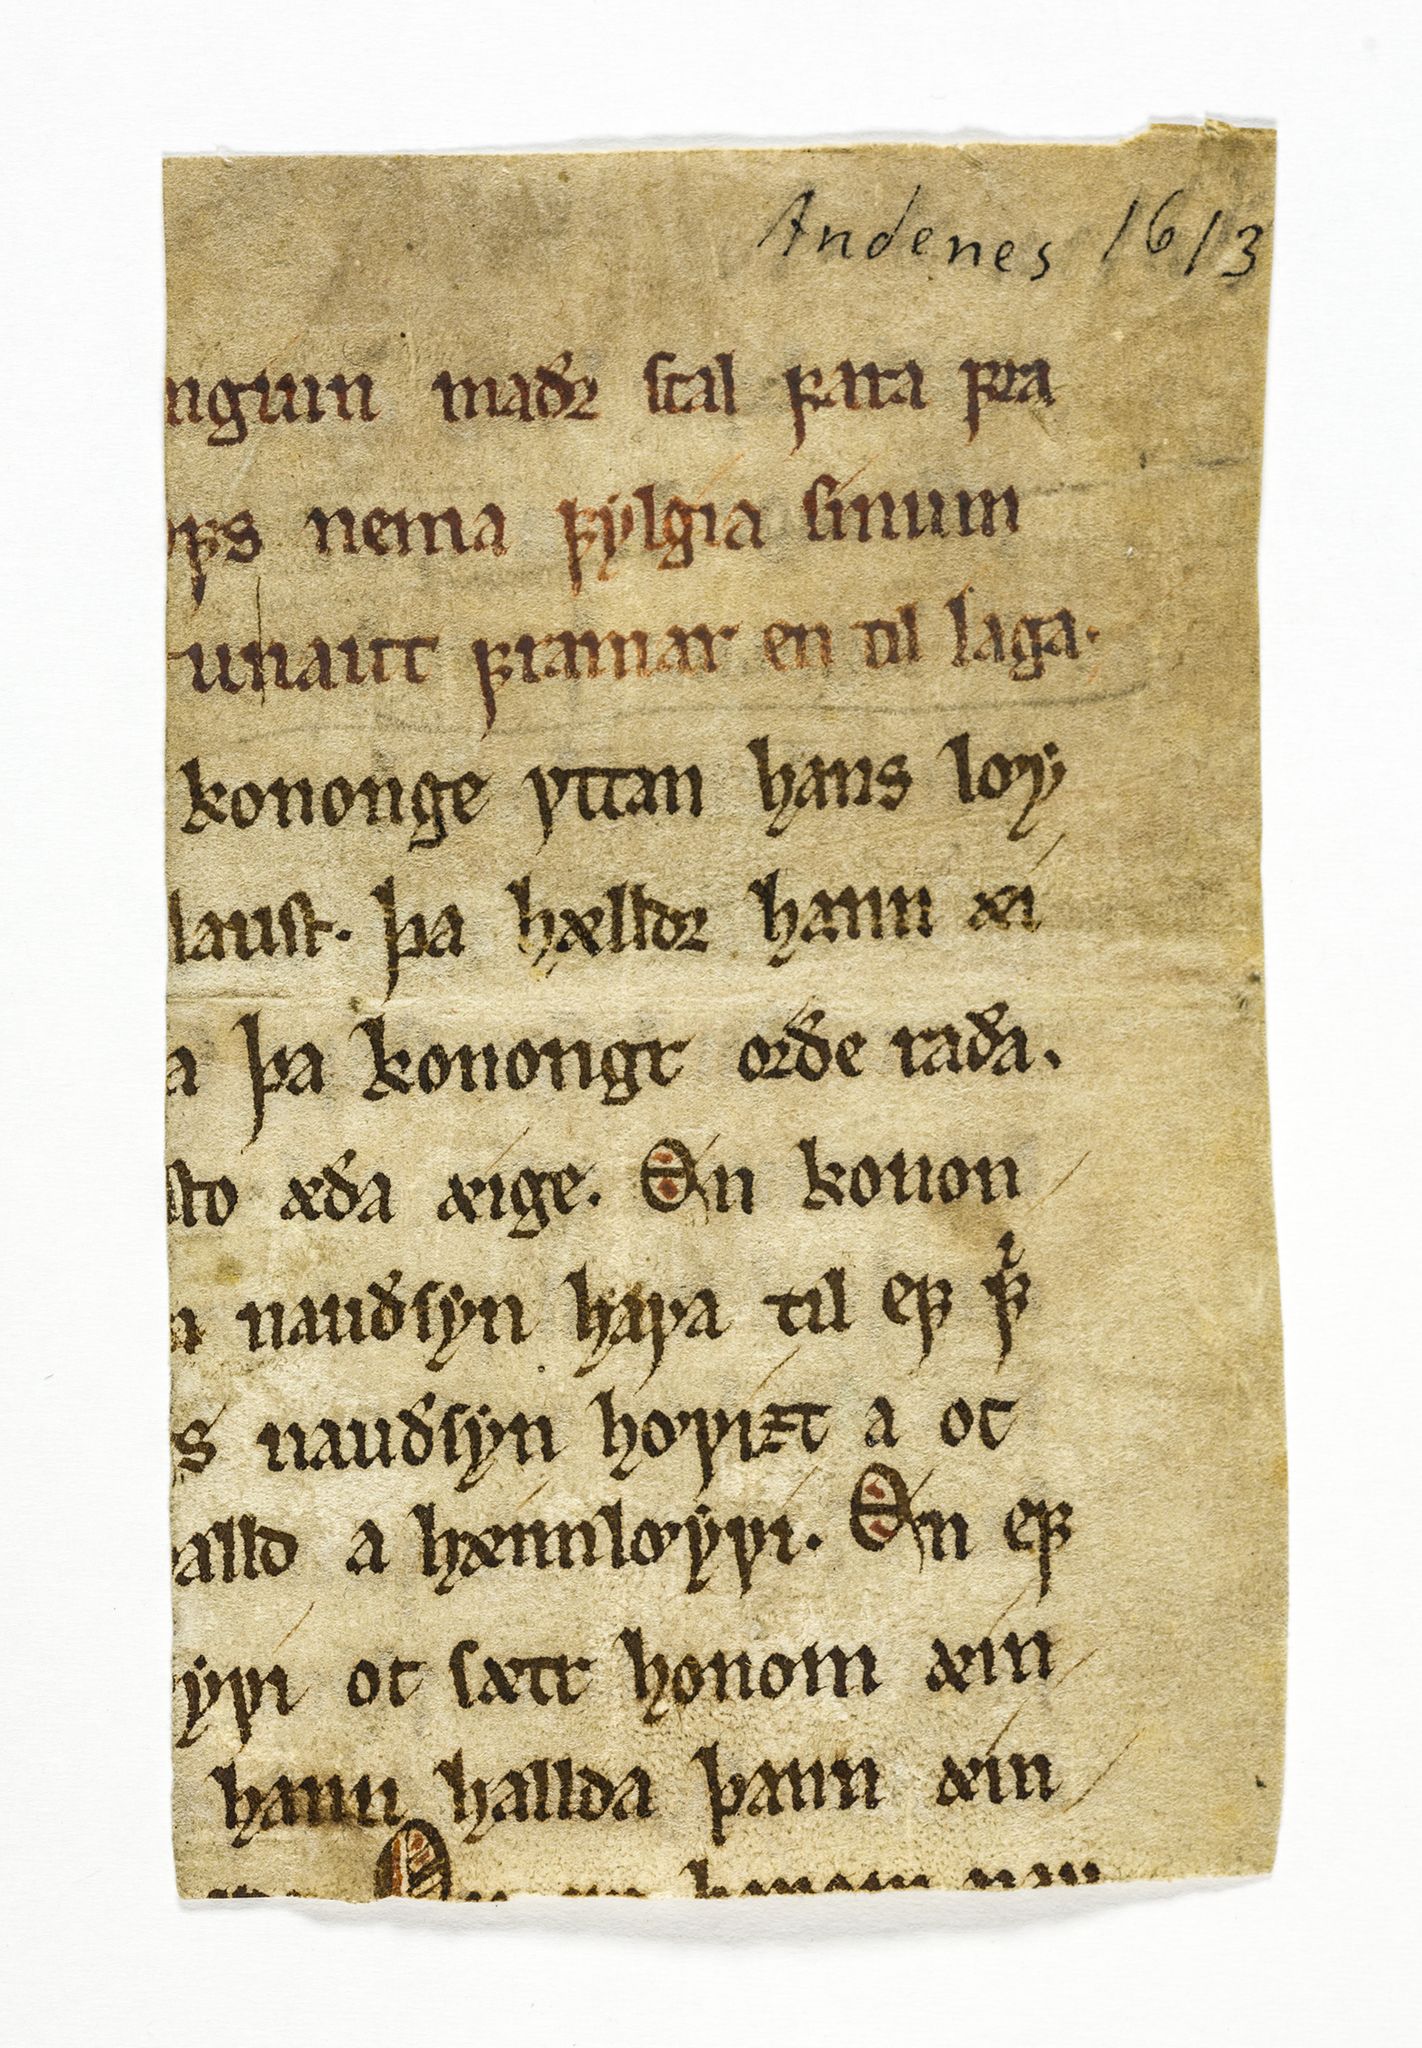 Andenes 1613
ngum maðꝛ scal ꝼara ꝼra
ꝼs nema ꝼẏlgia sinum
unaut ꝼramar en til laga.
kononge yttan hans loẏ
laust. þa hælldꝛ hann æi
a þa konongr oꝛðe raða.
sto æða æige. En konon
nauðsẏn haꝩa til eꝼ ꝼͥ
s nauðsẏn hoꝩizt a oc
alld a hæimloẏꝩi. En eꝼ
ẏꝩi oc sætr honom æin
hann hallda þann æin